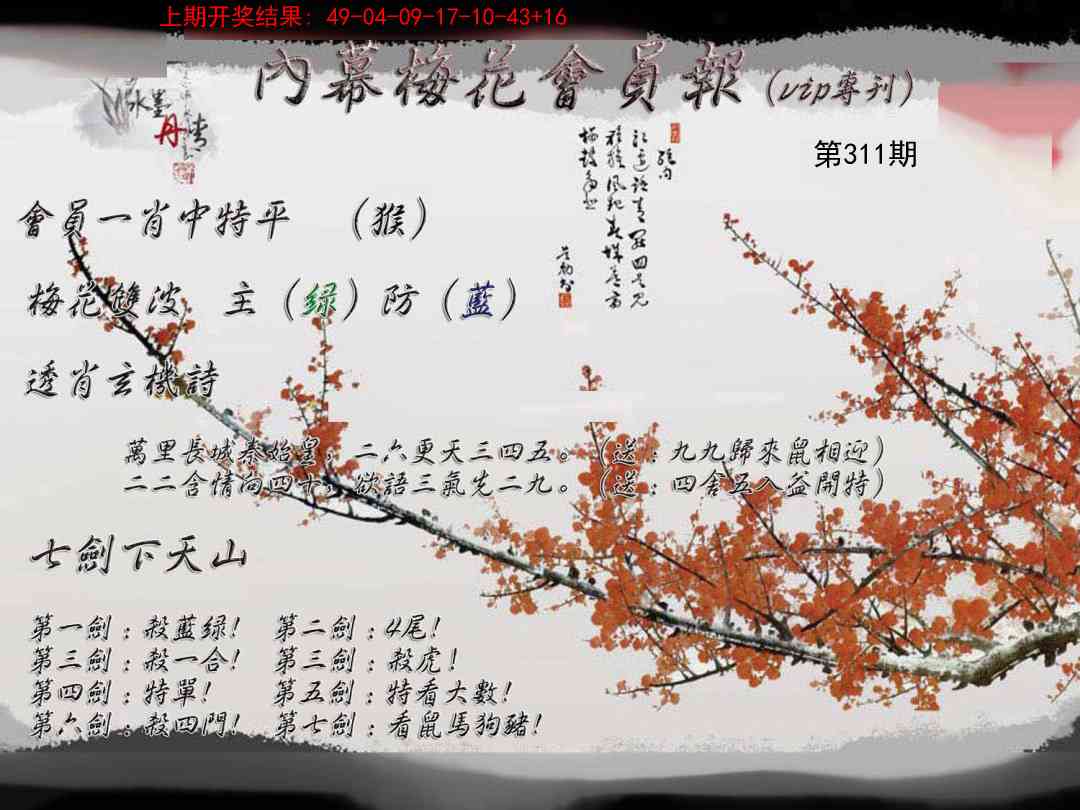 上期开奖结果: 49-04-09-17-10-43+16
內幕梅花會員報(vip專刊)
水墨
丹青
第311期
會員一肖中特平 (猴)
梅花雙波 主(绿)防(藍)
透肖玄機詩
萬里長城秦始皇,二六更天三四五。(送:九九歸來鼠相迎)
二二含情向四十,欲語三氣先二九。(送:四舍五入益開特)
七劍下天山
第一劍:殺藍绿! 第二劍:4尾!
第三劍:殺一合! 第三劍:殺虎!
第四劍:特單! 第五劍:特看大數!
第六劍:殺四門! 第七劍:看鼠馬狗豬!